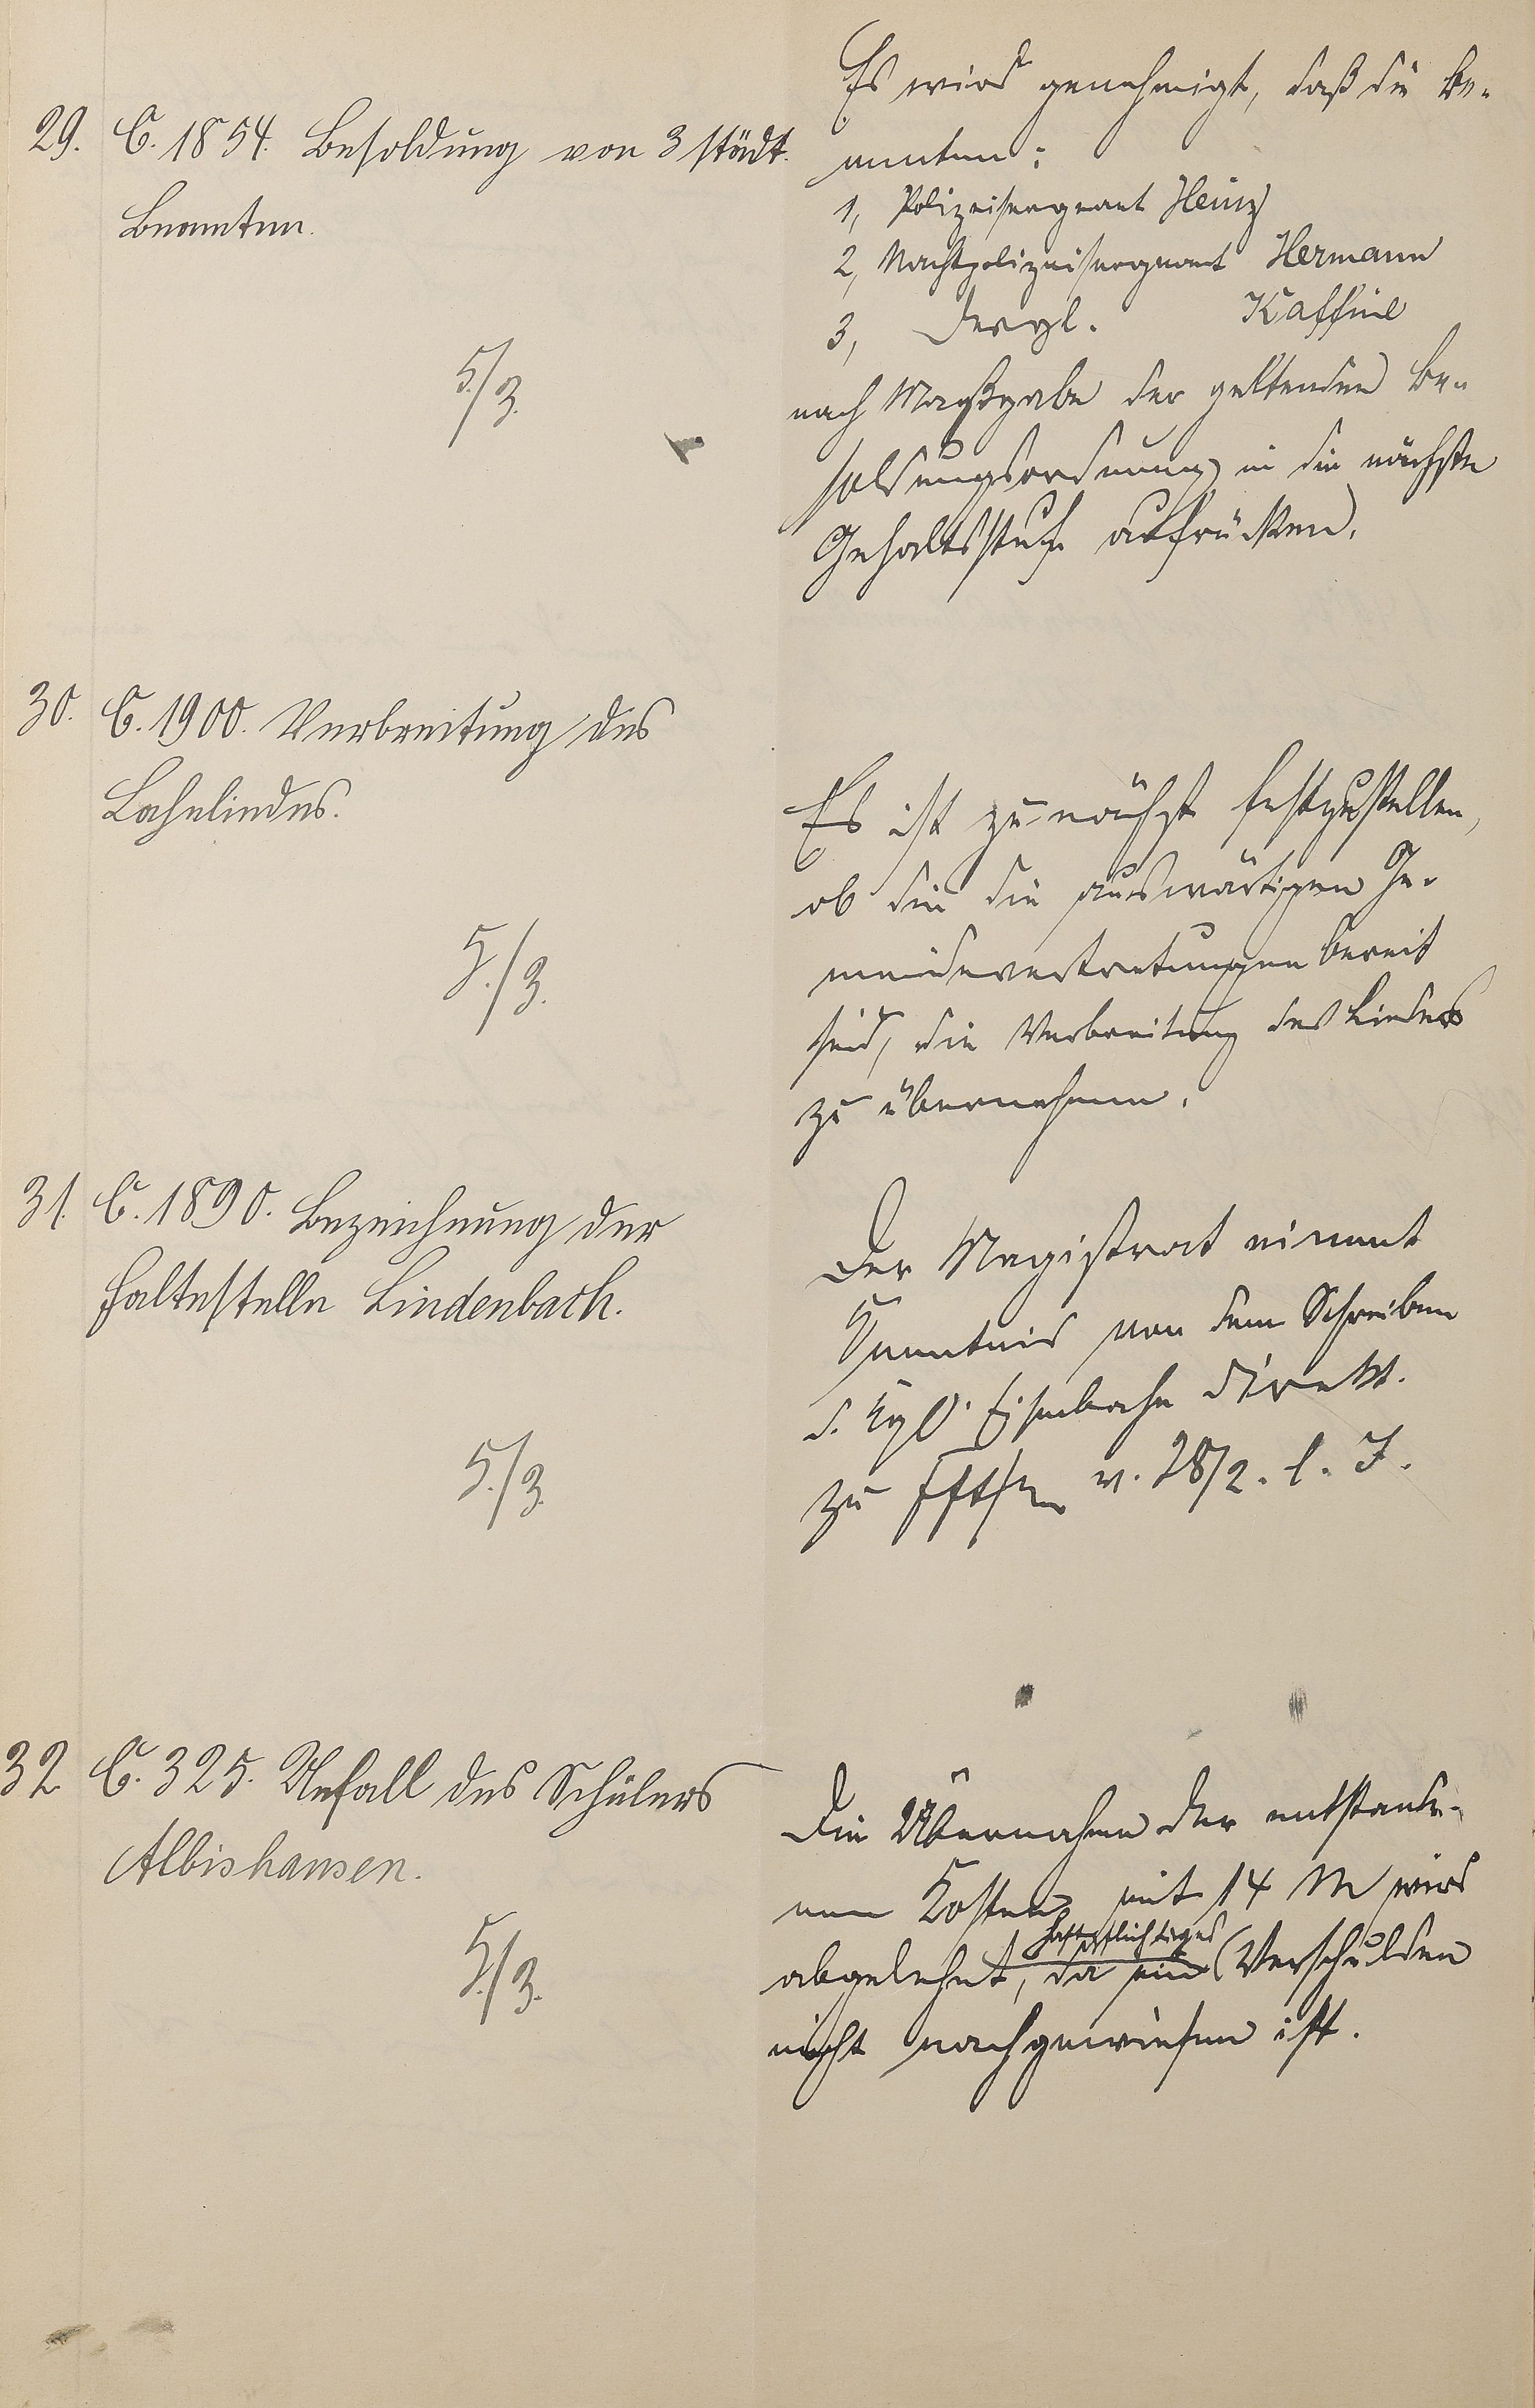 29. C. 1854. Besoldung von 3 städt.
Beamten.
5./3.
Es wird genehmigt, daß die Be-
amten:
1, Polizeisergeant Heinz
2, Nachtpolizeisergeant Hermann
3, Dergl. Kaffine
nach Maßgabe der geltenden Be-
soldungsordnung in die nächste
Gehaltsstufe aufrücken.
30. C. 1900. Verbreitung des
Lahnliedes.
5./3.
Es ist zunächst festzustellen,
ob die die auswärtigen Ge-
meindevertretungen bereit
sind, die Verbreitung des Liedes
zu übernehmen.
31. C. 1890. Bezeichnung der
Haltestelle Lindenbach.
5./3.
Der Magistrat nimmt
Kenntnis von dem Schreiben
d. Kgl. Eisenbahn Direkt.
zu Fft/M v. 28/2. l. J.
32 C. 325. Unfall des Schülers
Albishausen.
5./3.
Die Übernahme der entstande-
nen Kosten mit 14 M wird
haftpflichtiges
abgelehnt, da ein Verschulden
nicht nachgewiesen ist.